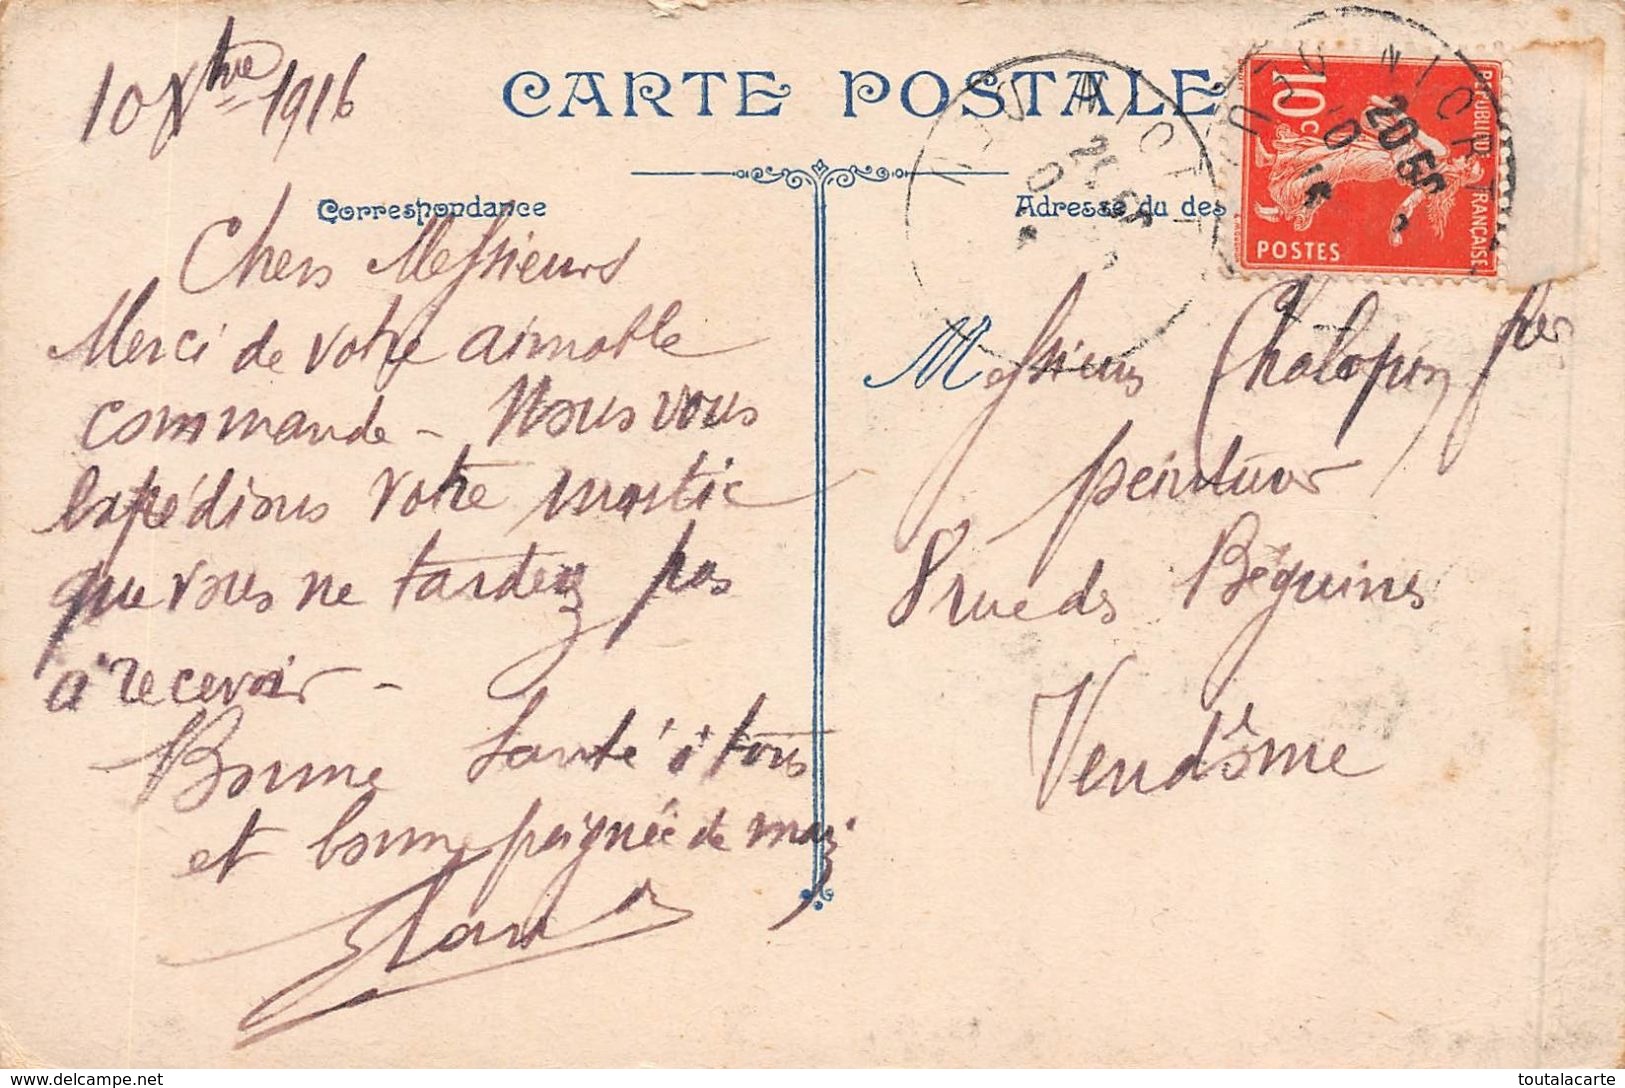 10 Xbre 1916
CARTE POSTALE
Correspondance
Adresse du des
10c
REPUBLIQUE FRANÇAISE
POSTES
Chers Messieurs
Merci de votre aimable
commande - Nous vous
expédions votre mastic
que vous ne tardez pas
à recevoir -
Bonne Santé à tous
et bonne poignée de main
Messieurs Chalopin frès
peinture
8 rue des Béguines
Vendôme
delcampe.net
toutalacarte